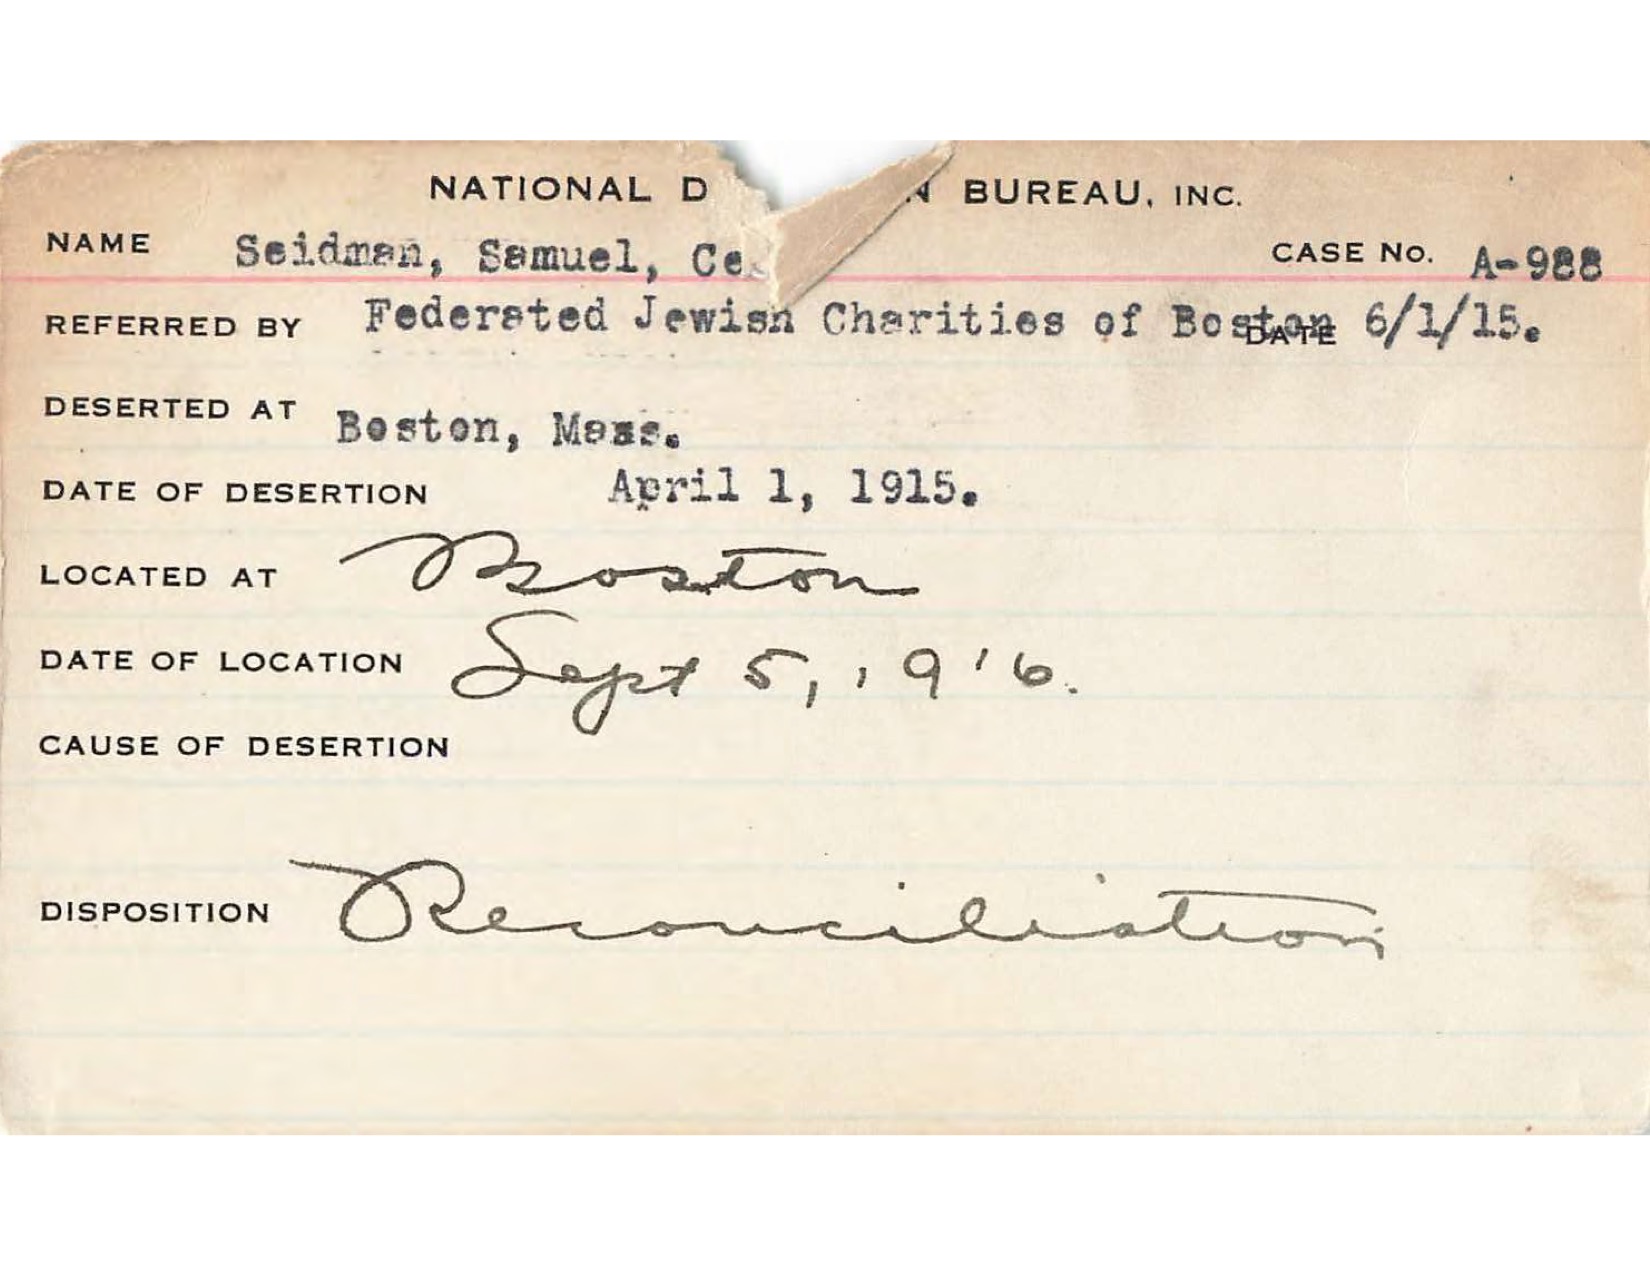 NATIONAL D N BUREAU, INC.
NAME Seidman, Samuel, Ce CASE No. A-988
REFERRED BY Federated Jewish Charities of Boston DATE 6/1/15.
DESERTED AT Boston, Mass.
DATE OF DESERTION April 1, 1915.
LOCATED AT Boston
DATE OF LOCATION Sept 5, 1916.
CAUSE OF DESERTION
DISPOSITION Reconciliation